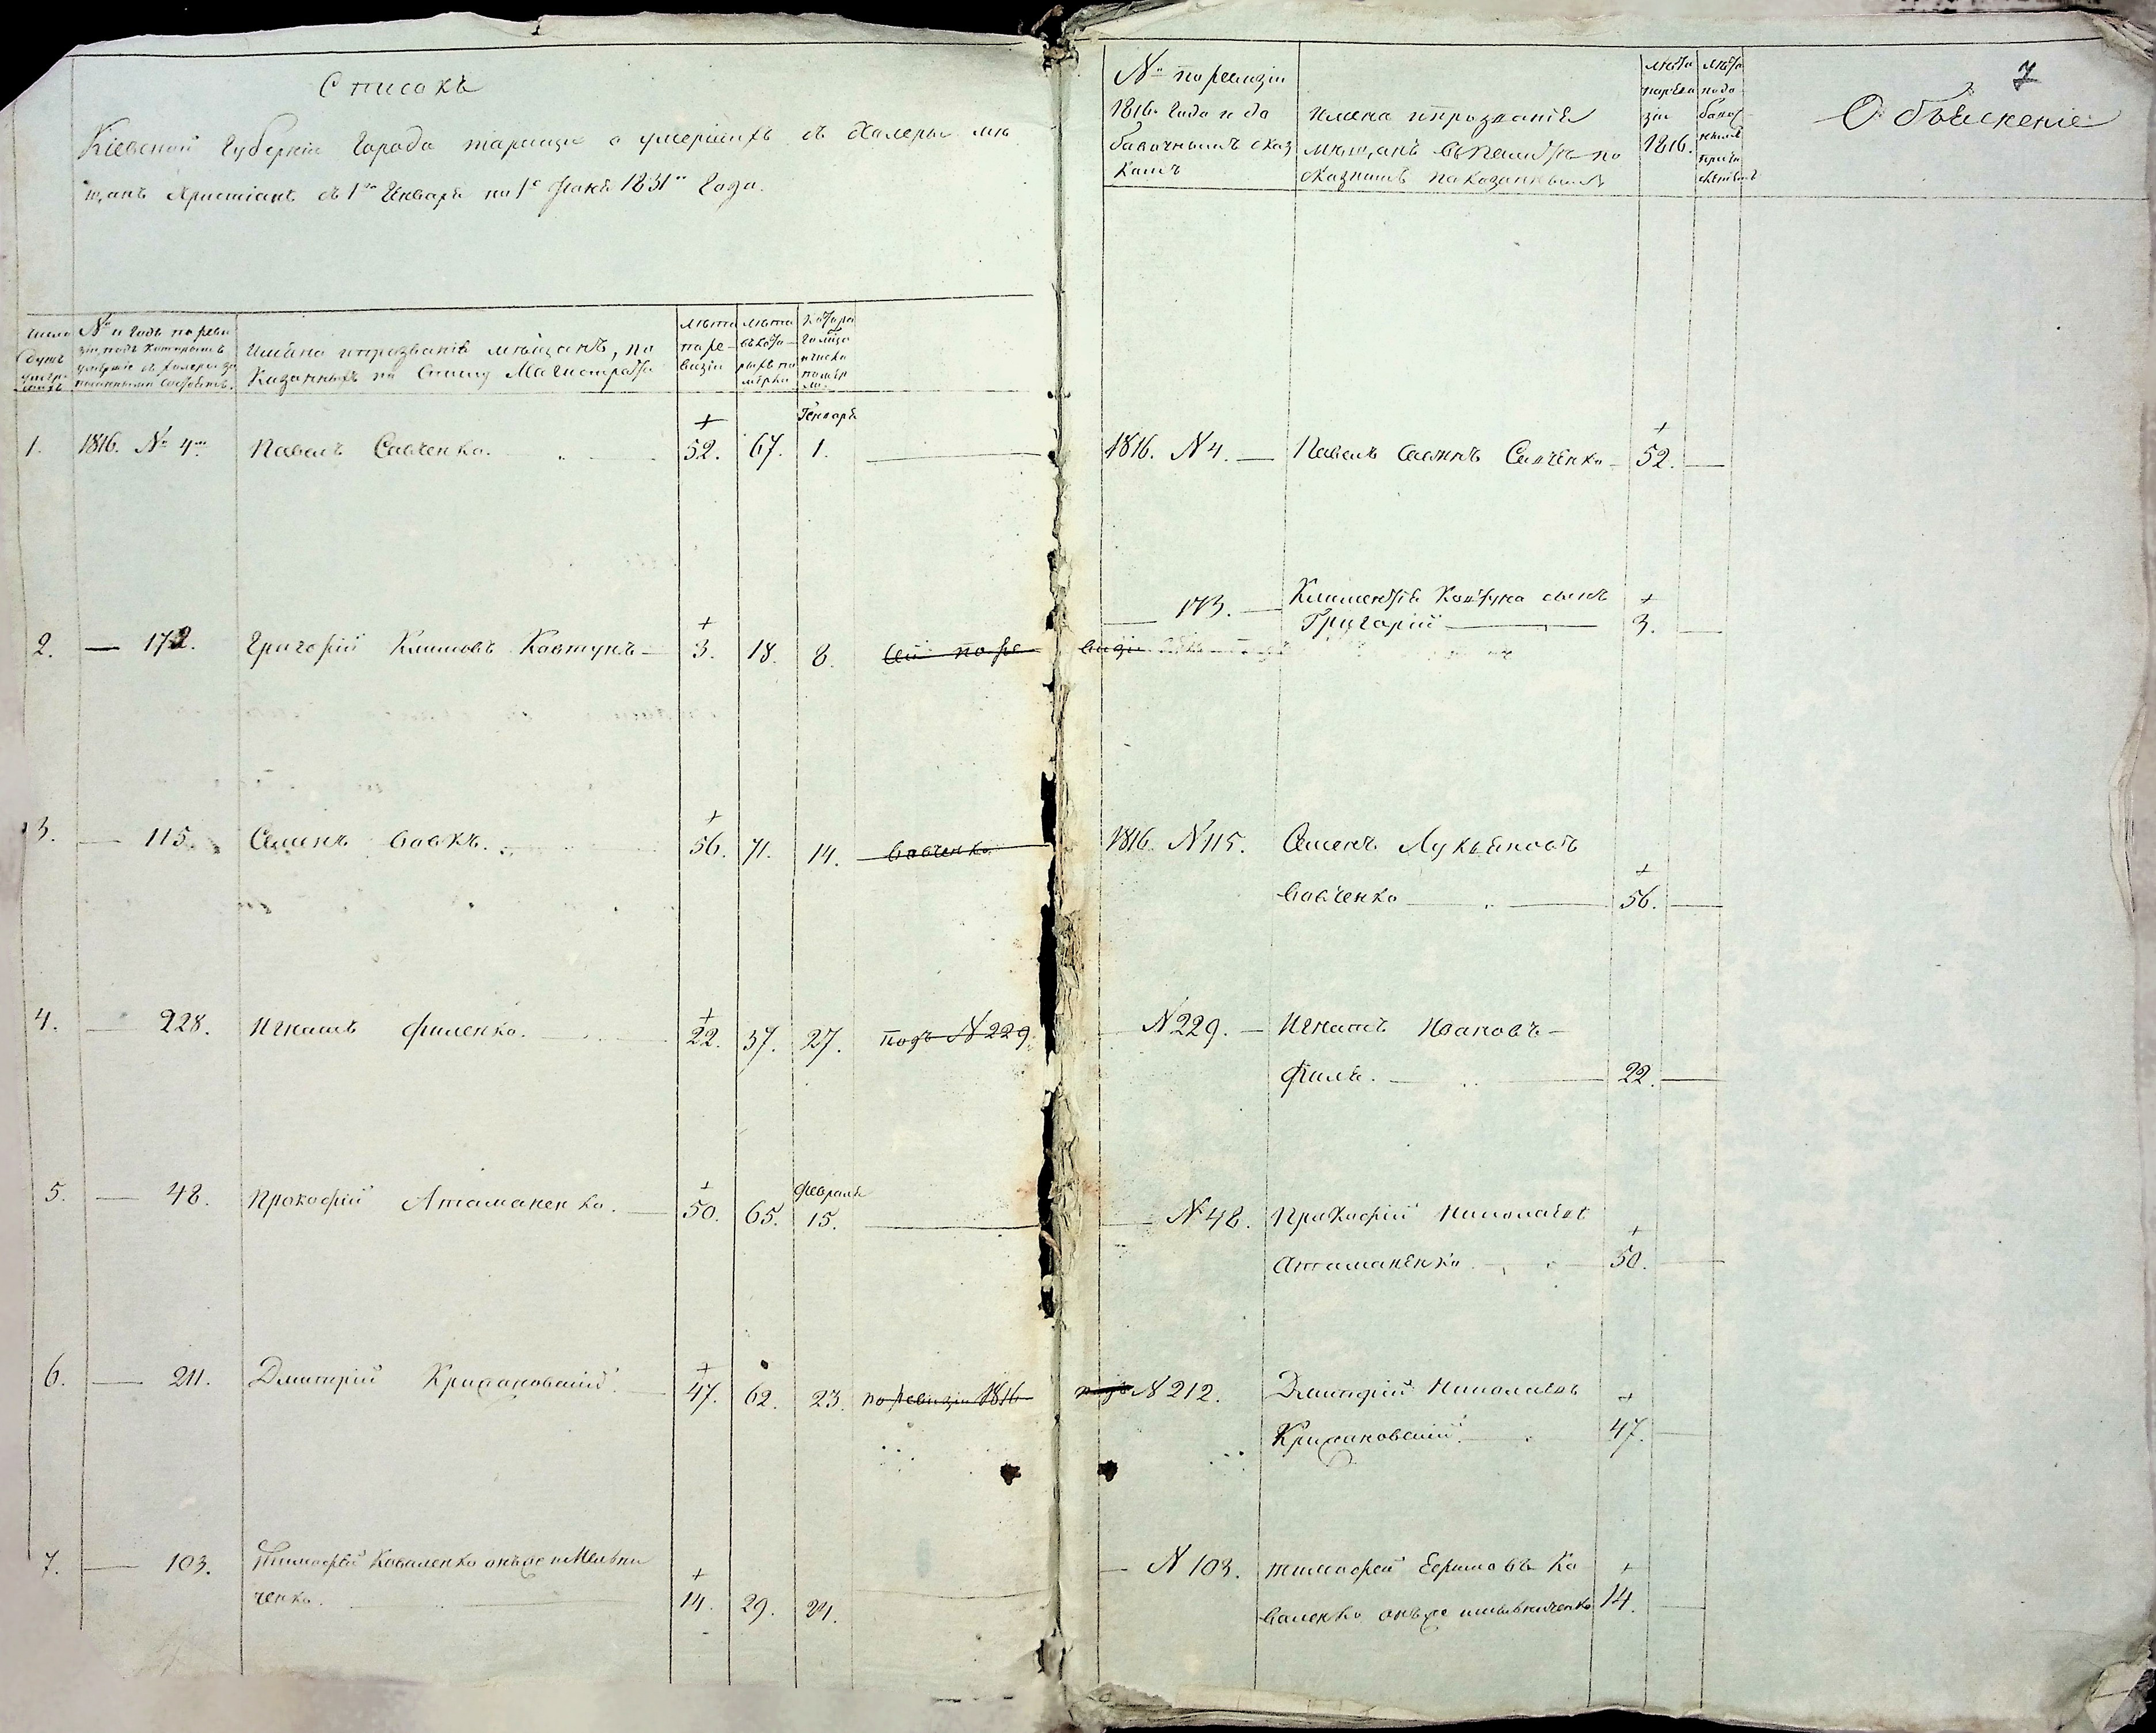 Списокъ
Кіевской Губерніи Города таращи о умершихъ съ Холеры мѣ
щанъ Христіанъ съ 1го Генваря по 1е 1831го Года.
Число
душъ
№ и Годъ по реви
зіи, подъ которымъ
умершіе съ холеры
Имѣна ипрозваніѣ мѣщанъ, по
казанныхъ по списку Магистрата
лѣта
по ре-
визіи
лѣта
въ кото-
рыхъ по
мѣрли
Котора
го мѣсяца
и числа
помѣр
ли
Генваря
1. 1816. № 4й Павелъ Савченко. 52. 67. 1.
2. — 172. Григорій Климовъ Ковтунъ 3. 18. 8. по ре
3. — 115. Семенъ Вовкъ. 56. 71. 14. Вовченко
4. — 228. Игнатъ Филенко. 22. 37. 27. подъ N 229.
Февраля
5. — 48. Прокофій Атаманенко. 50. 65. 15.
6. — 211. Дмитрій Крижановскій. 47. 62. 23. по ревизіи 1816
7. — 103. Тимофей Коваленко онъже иМелни
ченко. 14. 29. 24.
7
№ по ревизіи
1816. Года и до
бавочнымъ сказ
камъ
имена ипрозваніѣ
мѣщанъ по
сказкамъ показанныхъ
лѣта
по реви
зіи
1816.
лѣта
по до
бавоч
нымъ
Объясненіе
1816. N 4. — Павелъ Савченко 52.
173. — Климентія Ковтуна сынъ
Григорій 3.
визіи
1816. N 115. Семенъ Лукьяновъ
Вовченко 56.
N 229. — Игнатъ Ивановъ —
Филь. 22.
N 48. Прокофій Николаевъ
Атаманенко. 50.
подъ N 212. Дмитрій Николаевъ
Крижановскій. 47.
— N 103. тимофей Ефимовъ Ко
валенко онъже имельниченко 14.